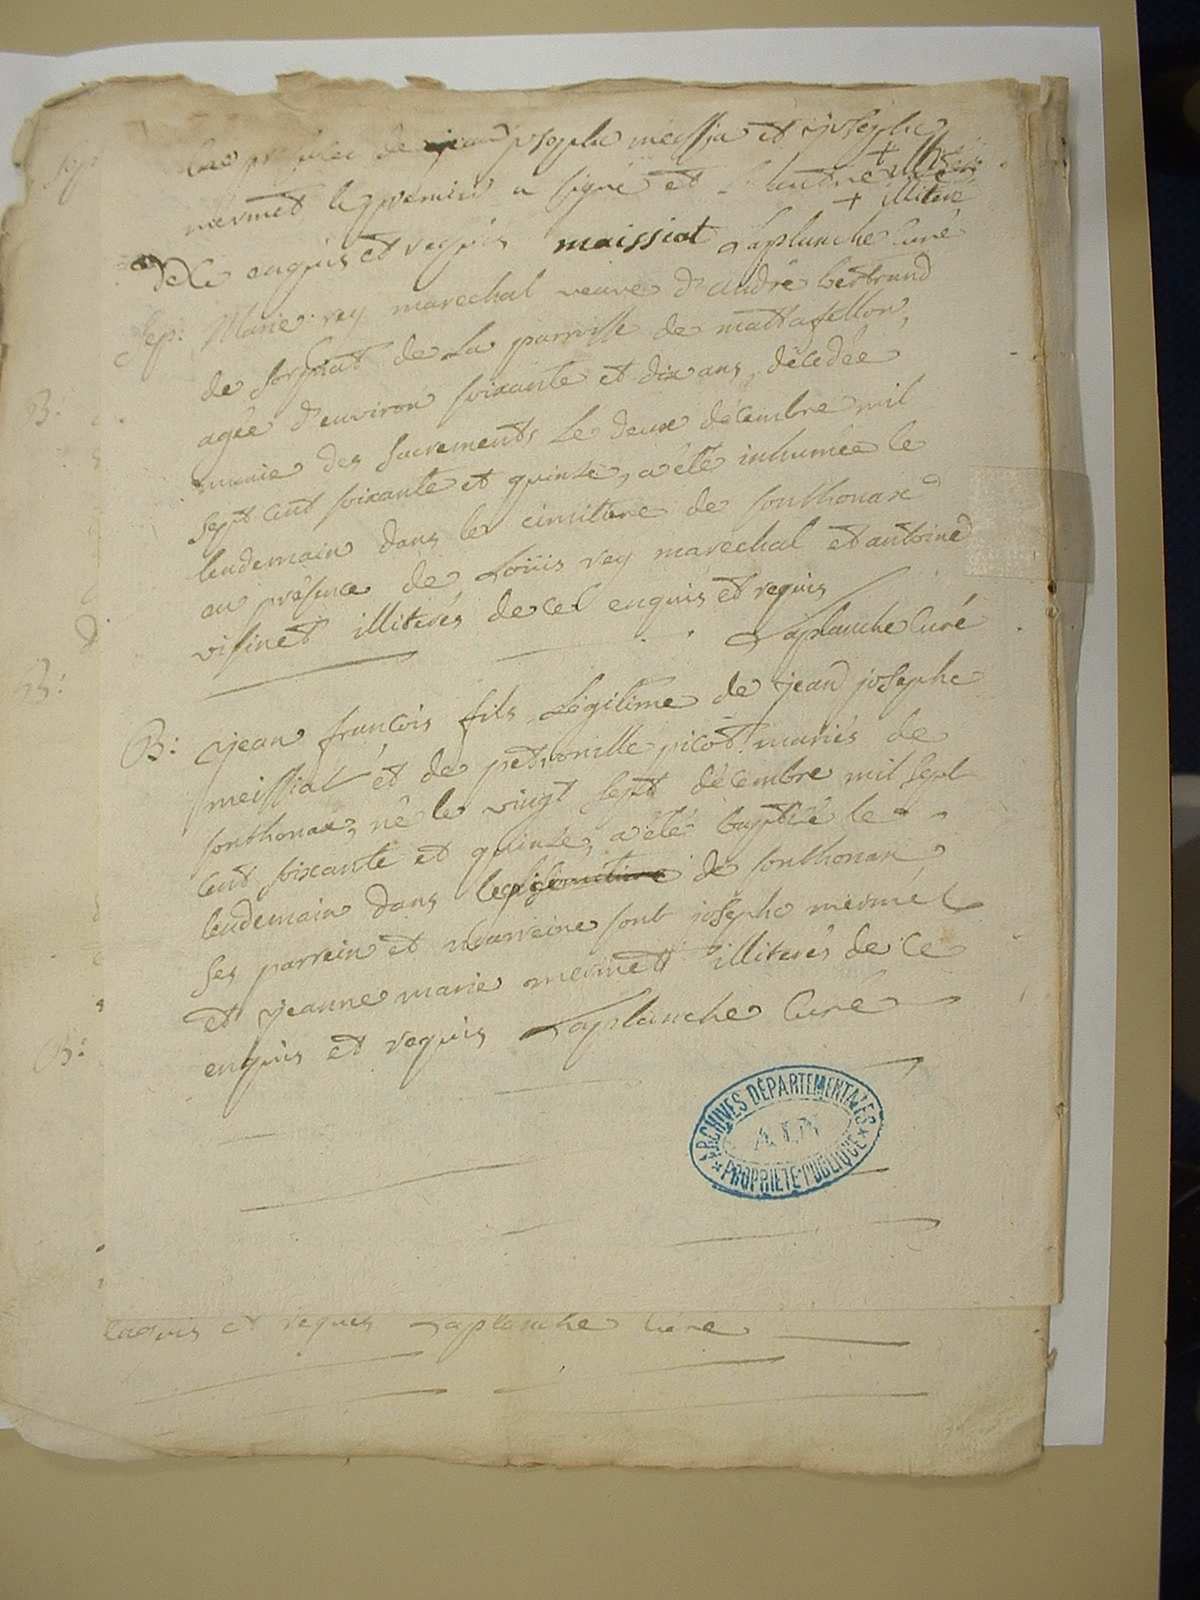 en présence de jean joseph meissia et joseph
mermet le premier a signé et l'autre
+ illiteré
de ce enquis et requis maissiat Laplanche Curé
Sep: Marie rey marechal veuve d'andré bertrand
de sorpiat de La parroisse de mattafellon,
agée d'environ soixante et dix ans, décedée
munie des sacrements Le deux décembre mil
sept cent soixante et quinze, a été inhumée le
lendemain dans le cimitiere de sonthonax
en présence de Loüis rey marechal et antoine
visinet illiterés de ce enquis et requis
Laplanche Curé
B: jean françois fils Légitime de jean josephe
meissiat et de petronille picot mariés de
sonthonax, né le vingt sept décembre mil sept
cent soixante et quinze, a été baptisé le
lendemain dans de sonthonax
ses parrein et marreine sont josephe mermet
et jeanne marie mermet illiterés de ce
enquis et requis Laplanche Curé
ARCHIVES DÉPARTEMENTALES
AIN
PROPRIÉTÉ PUBLIQUE
enquis et requis Laplanche Curé
Sep
B:
B:
B: